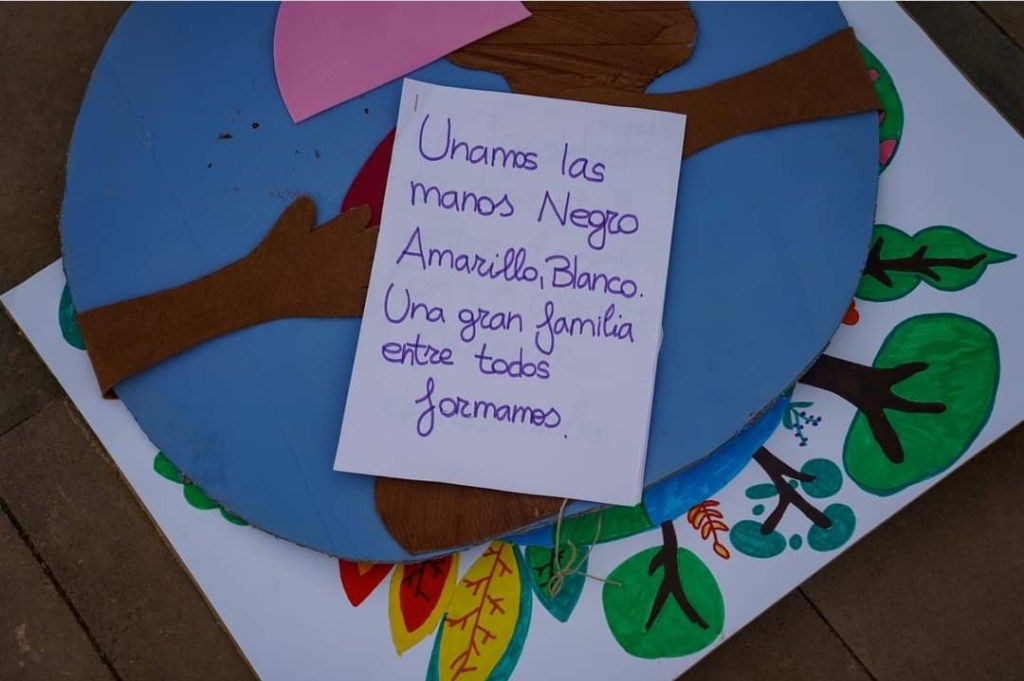 Unamos las
manos Negro
Amarillo, Blanco.
Una gran familia
entre todos
formamos.